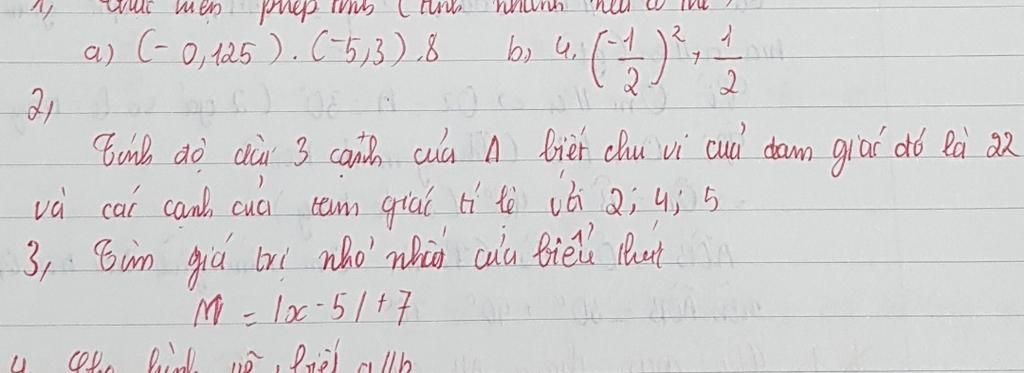 1, thực hiện phép tính (tính nhanh nếu có thể)
a) (-0,125).(-5,3).8 b, 4.(-1/2)²+1/2
2,
Tính độ dài 3 cạnh của Δ biết chu vi của tam giác đó là 22
và các cạnh của tam giác tỉ lệ với 2; 4; 5
3, Tìm giá trị nhỏ nhất của biểu thức
M = |x-5|+7
4, Cho hình vẽ, biết a//b